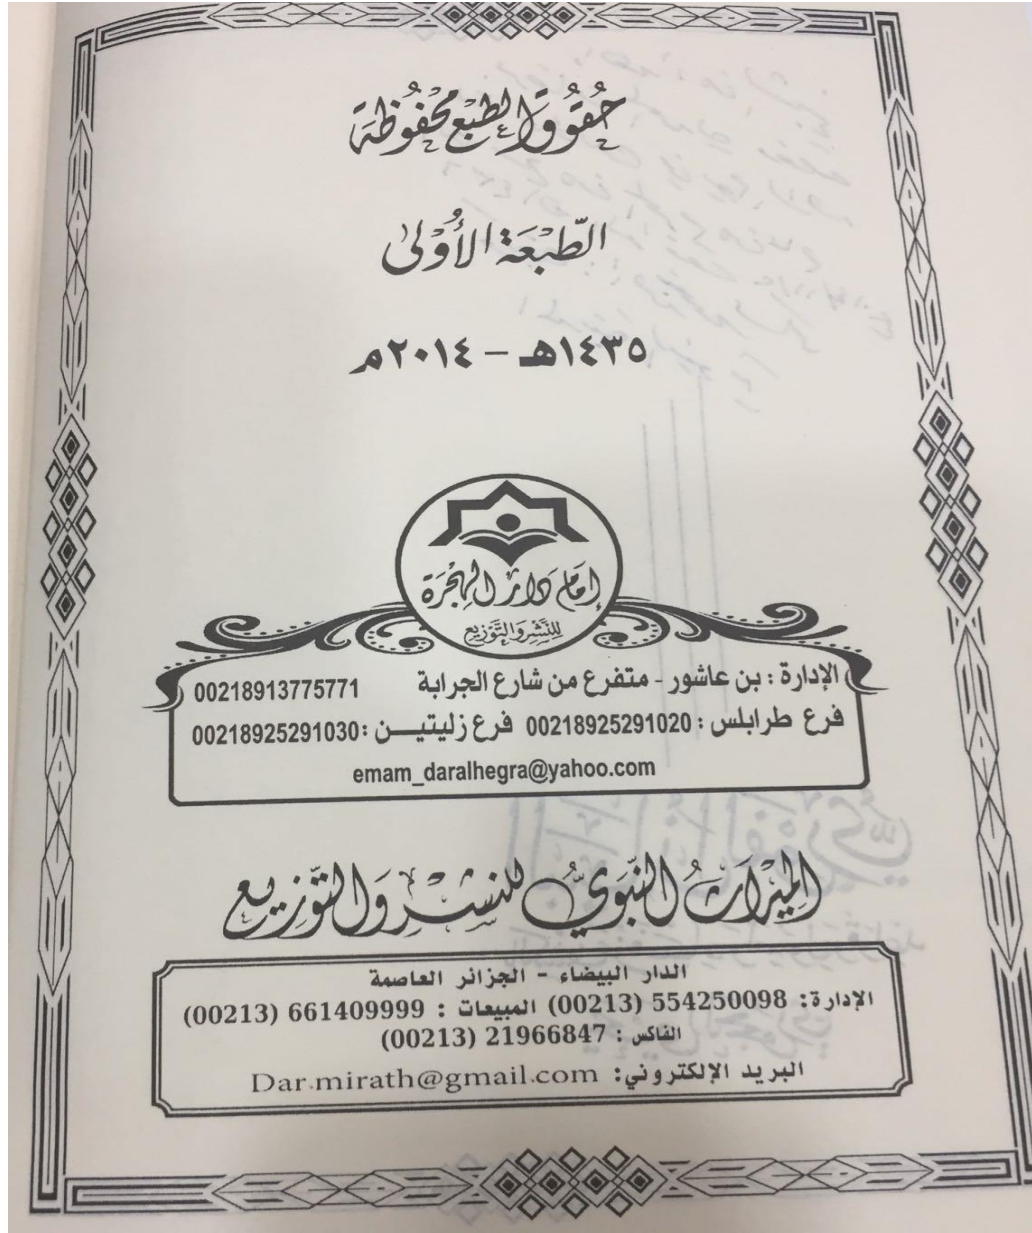 حُقُوق الطبع مَحْفُوظَة
الطَّبْعَة الأُوْلى
١٤٣٥هـ - ٢٠١٤م
إمَام دَار الهِجْرَة
للنَّشْر وَالتَّوْزِيع
الإدارة : بن عاشور - متفرع من شارع الجرابة 00218913775771
فرع طرابلس : 00218925291020 فرع زليتيـــن : 00218925291030
emam_daralhegra@yahoo.com
المِيْرَاثُ النَّبَوِيُّ للنشر وَالتَّوْزِيع
الدار البيضاء - الجزائر العاصمة
الإدارة: 554250098 (00213) المبيعات : 661409999 (00213)
الفاكس : 21966847 (00213)
البريد الإلكتروني: Dar.mirath@gmail.com